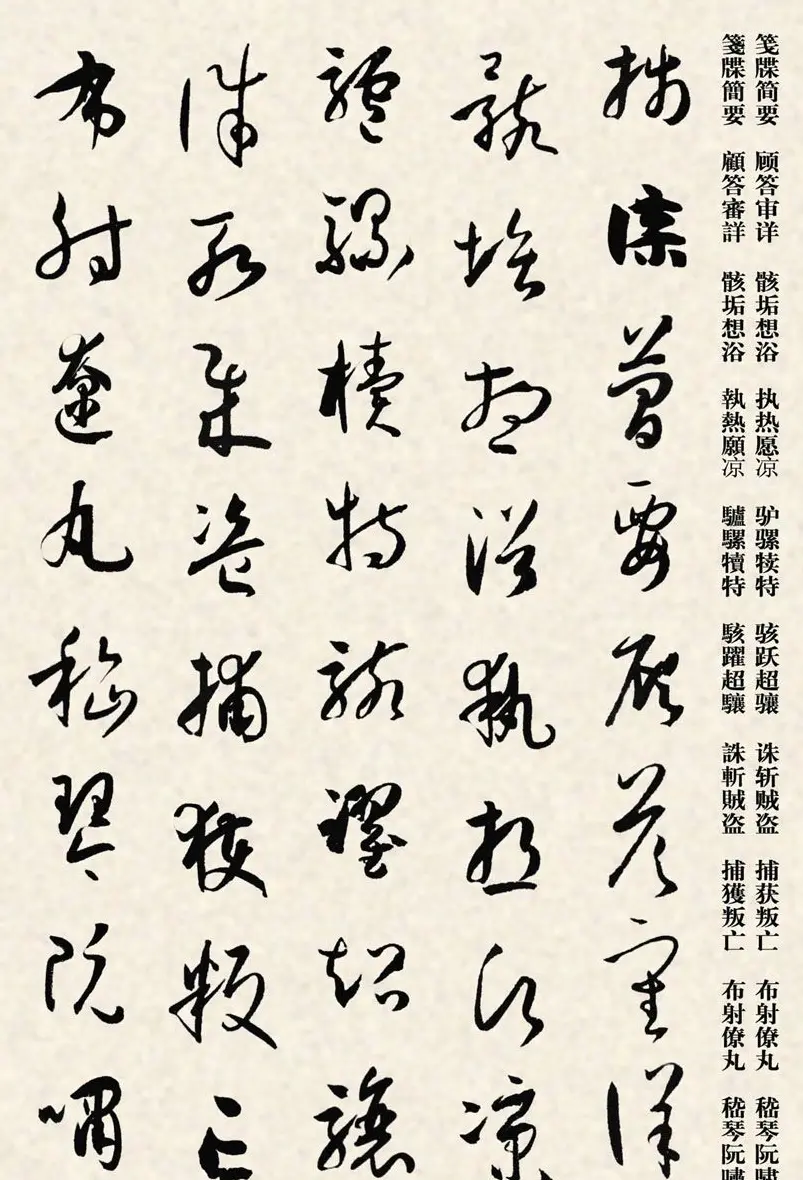 笺牒简要 顾答审详 骸垢想浴 执热愿凉 驴骡犊特 骇跃超骧 诛斩贼盗 捕获叛亡 布射僚丸 嵇琴阮啸
箋牒簡要 顧答審詳 骸垢想浴 執熱願凉 驢騾犢特 駭躍超驤 誅斬賊盗 捕獲叛亡 布射僚丸 嵇琴阮嘯
牋牒簡要顧答審詳
骸垢想浴執熱願凉
驢騾犢特駭躍超驤
誅斬賊盗捕獲叛亡
布射遼丸嵇琴阮嘯